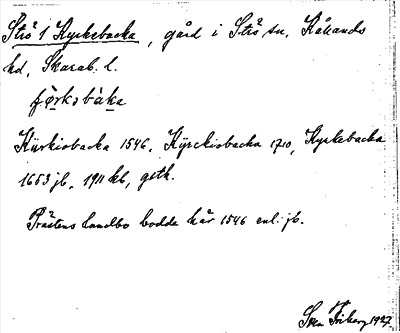 Strö 1 Kyrkebacka, gård i Strö sn. Kållands
hd, Skarab. l.
Kiirkiobacka 1546, Kyrckiobacka 1710, Kyrkebacka
1653 jb, 1911 kb, geth.
Prästens landbo bodde här 1546 enl. jb.
Sven Friberg 1927.